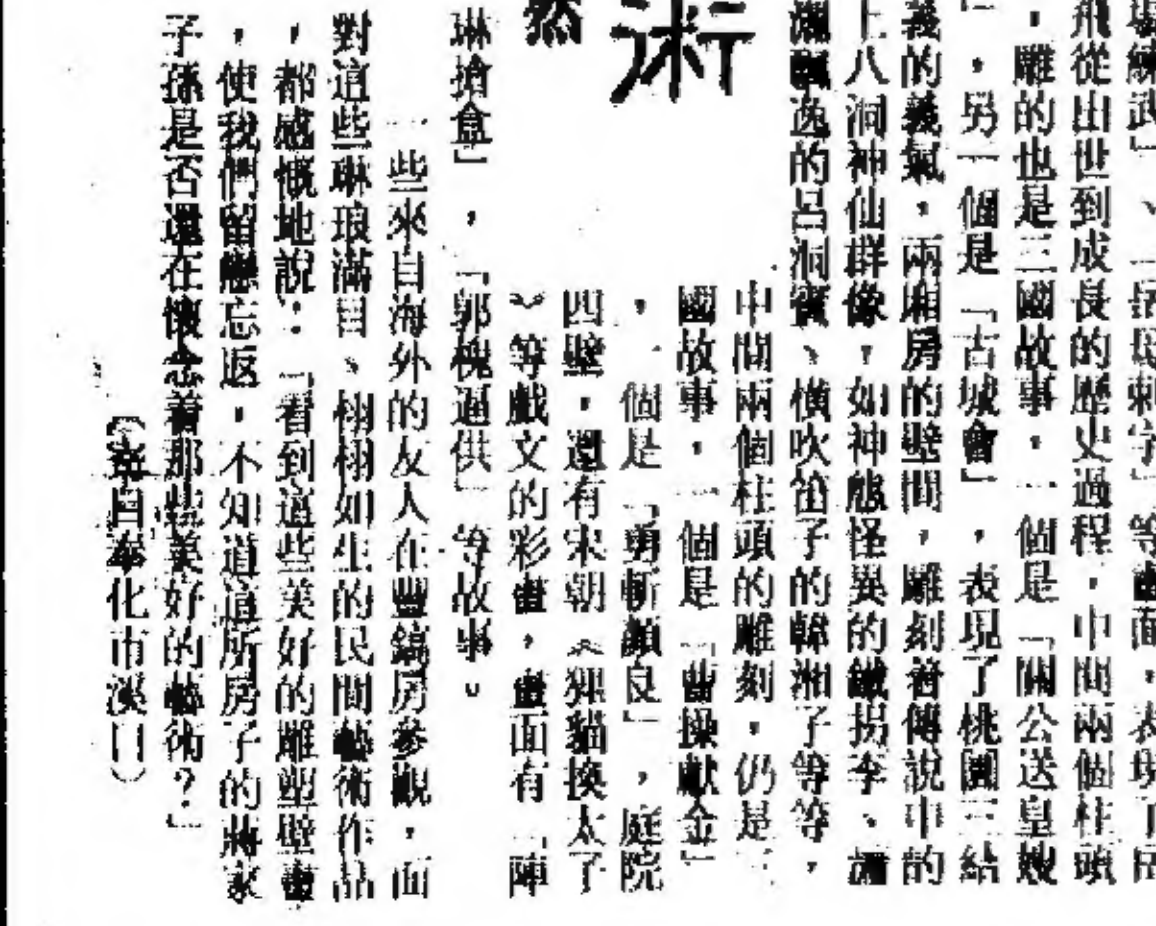 場練武」、「岳母刺字」等畫面,表現了岳
飛從出世到成長的歷史過程,中間兩個柱頭
,雕的也是三國故事,一個是「關公送皇嫂
」,另一個是「古城會」,表現了桃園三結
義的義氣,兩廂房的壁間,雕刻着傳說中的
上八洞神仙群像,如神態怪異的鐵拐李、瀟
灑飄逸的呂洞賓、橫吹笛子的韓湘子等等,
中間兩個柱頭的雕刻,仍是三
國故事,一個是「曹操獻金」
,一個是「勇斬顏良」,庭院
四壁,還有宋朝《狸貓換太子
》等戲文的彩畫,畫面有「陳
琳搶盒」,「郭槐逼供」等故事。
一些來自海外的友人在豐鎬房參觀,面
對這些琳琅滿目、栩栩如生的民間藝術作品
,都感慨地說:「看到這些美好的雕塑壁畫
,使我們留戀忘返,不知道這所房子的蔣家
子孫是否還在懷念着那些美好的藝術?」
(寄自奉化市溪口)
術
然